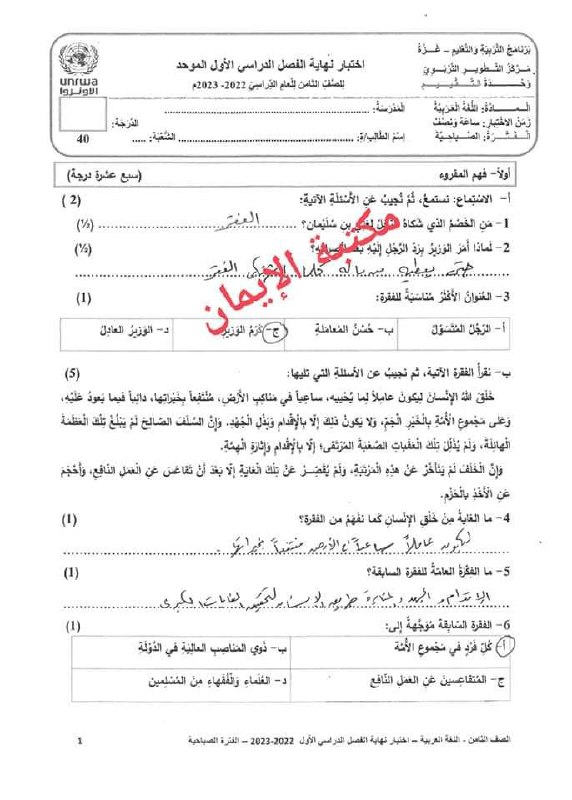 برنامج التربية والتعليم - غزة
مركز التطوير التربوي
وحدة التقييم
اختبار نهاية الفصل الدراسي الأول الموحد
للصف الثامن للعام الدراسي 2022- 2023م
unrwa
الأونروا
المادة: اللغة العربية
زمن الاختبار: ساعة ونصف
الفترة: الصباحية
المدرسة:
اسم الطالب/ة: الشعبة:
الدرجة:
40
أولاً- فهم المقروء (سبع عشرة درجة)
أ- الاستماع: نستمع، ثم نجيب عن الأسئلة الآتية: ( 2 )
1- من الخصم الذي شكاه الرجل بن سليمان؟ الفقر (½)
2- لماذا أمر الوزير برد الرجل إليه بعد (½)
حتى يعطيه كلما اشتكى الفقر
مكتبة الإيمان
3- العنوان الأكثر مناسبة للفقرة: (1)
أ- الرجل المتسول ب- حسن المعاملة ج- كرم الوزير د- الوزير العادل
ب- نقرأ الفقرة الآتية، ثم نجيب عن الأسئلة التي تليها: (5)
خلق الله الإنسان ليكون عاملاً لما يحييه، ساعياً في مناكب الأرض، منتفعاً بخيراتها، دائباً فيما يعود عليه،
وعلى مجموع الأمة بالخير الجم، ولا يكون ذلك إلا بالإقدام وبذل الجهد. وإن السلف الصالح لم يبلغ تلك العظمة
الهائلة، ولم يذلل تلك العقبات الصعبة المرتقى؛ إلا بالإقدام وإثارة الهمة.
وإن الخلف لم يتأخر عن هذه المرتبة، ولم يقصر عن تلك الغاية إلا بعد أن تقاعس عن العمل النافع، وأحجم
عن الأخذ بالحزم.
4- ما الغاية من خلق الإنسان كما نفهم من الفقرة؟ (1)
ليكون عاملاً ساعياً في الأرض منتفعاً بخيراتها
5- ما الفكرة العامة للفقرة السابقة؟ (1)
الإقدام و الجهد و المثابرة طريق الإنسان لتحقيق الغايات الكبرى
6- الفقرة السابقة موجهة إلى: (1)
أ- كل فرد في مجموع الأمة ب- ذوي المناصب العالية في الدولة
ج- المتقاعسين عن العمل النافع د- العلماء والفقهاء من المسلمين
الصف الثامن - اللغة العربية – اختبار نهاية الفصل الدراسي الأول 2022-2023 – الفترة الصباحية 1